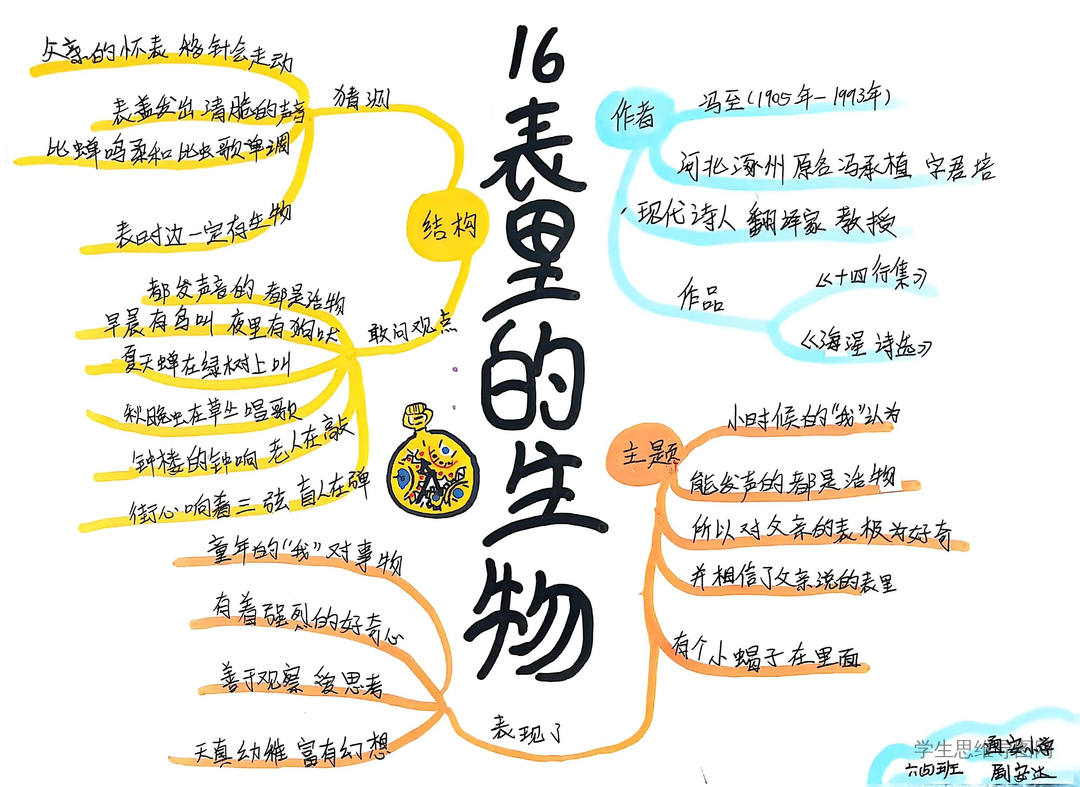 16
表里的生物
作者
冯至(1905年-1993年)
河北涿州 原名冯承植 字君培
现代诗人 翻译家 教授
作品
《十四行集》
《海涅诗选》
结构
猜测
父亲的怀表 秒针会走动
表盖发出清脆的声音
比蝉鸣柔和 比虫歌单调
表时边一定有生物
敢问观点
都发声音的 都是活物
早晨有鸟叫 夜里有狗吠
夏天蝉在绿树上叫
秋晚虫在草丛唱歌
钟楼的钟响 老人在敲
街心响着三弦 盲人在弹
主题
小时候的"我"认为
能发声的都是活物
所以对父亲的表极为好奇
并相信了父亲说的表里
有个小蝎子在里面
表现了
童年的"我"对事物
有着强烈的好奇心
善于观察 爱思考
天真幼稚 富有幻想
学生思维导图网
六(4)班
周安达